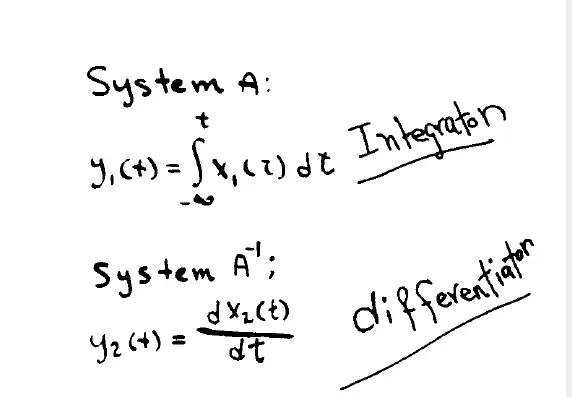 System A:
y₁(t) = ∫_{-∞}^{t} x₁(τ) dt Integrator
System A⁻¹;
y₂(t) = dx₂(t)/dt differentiator